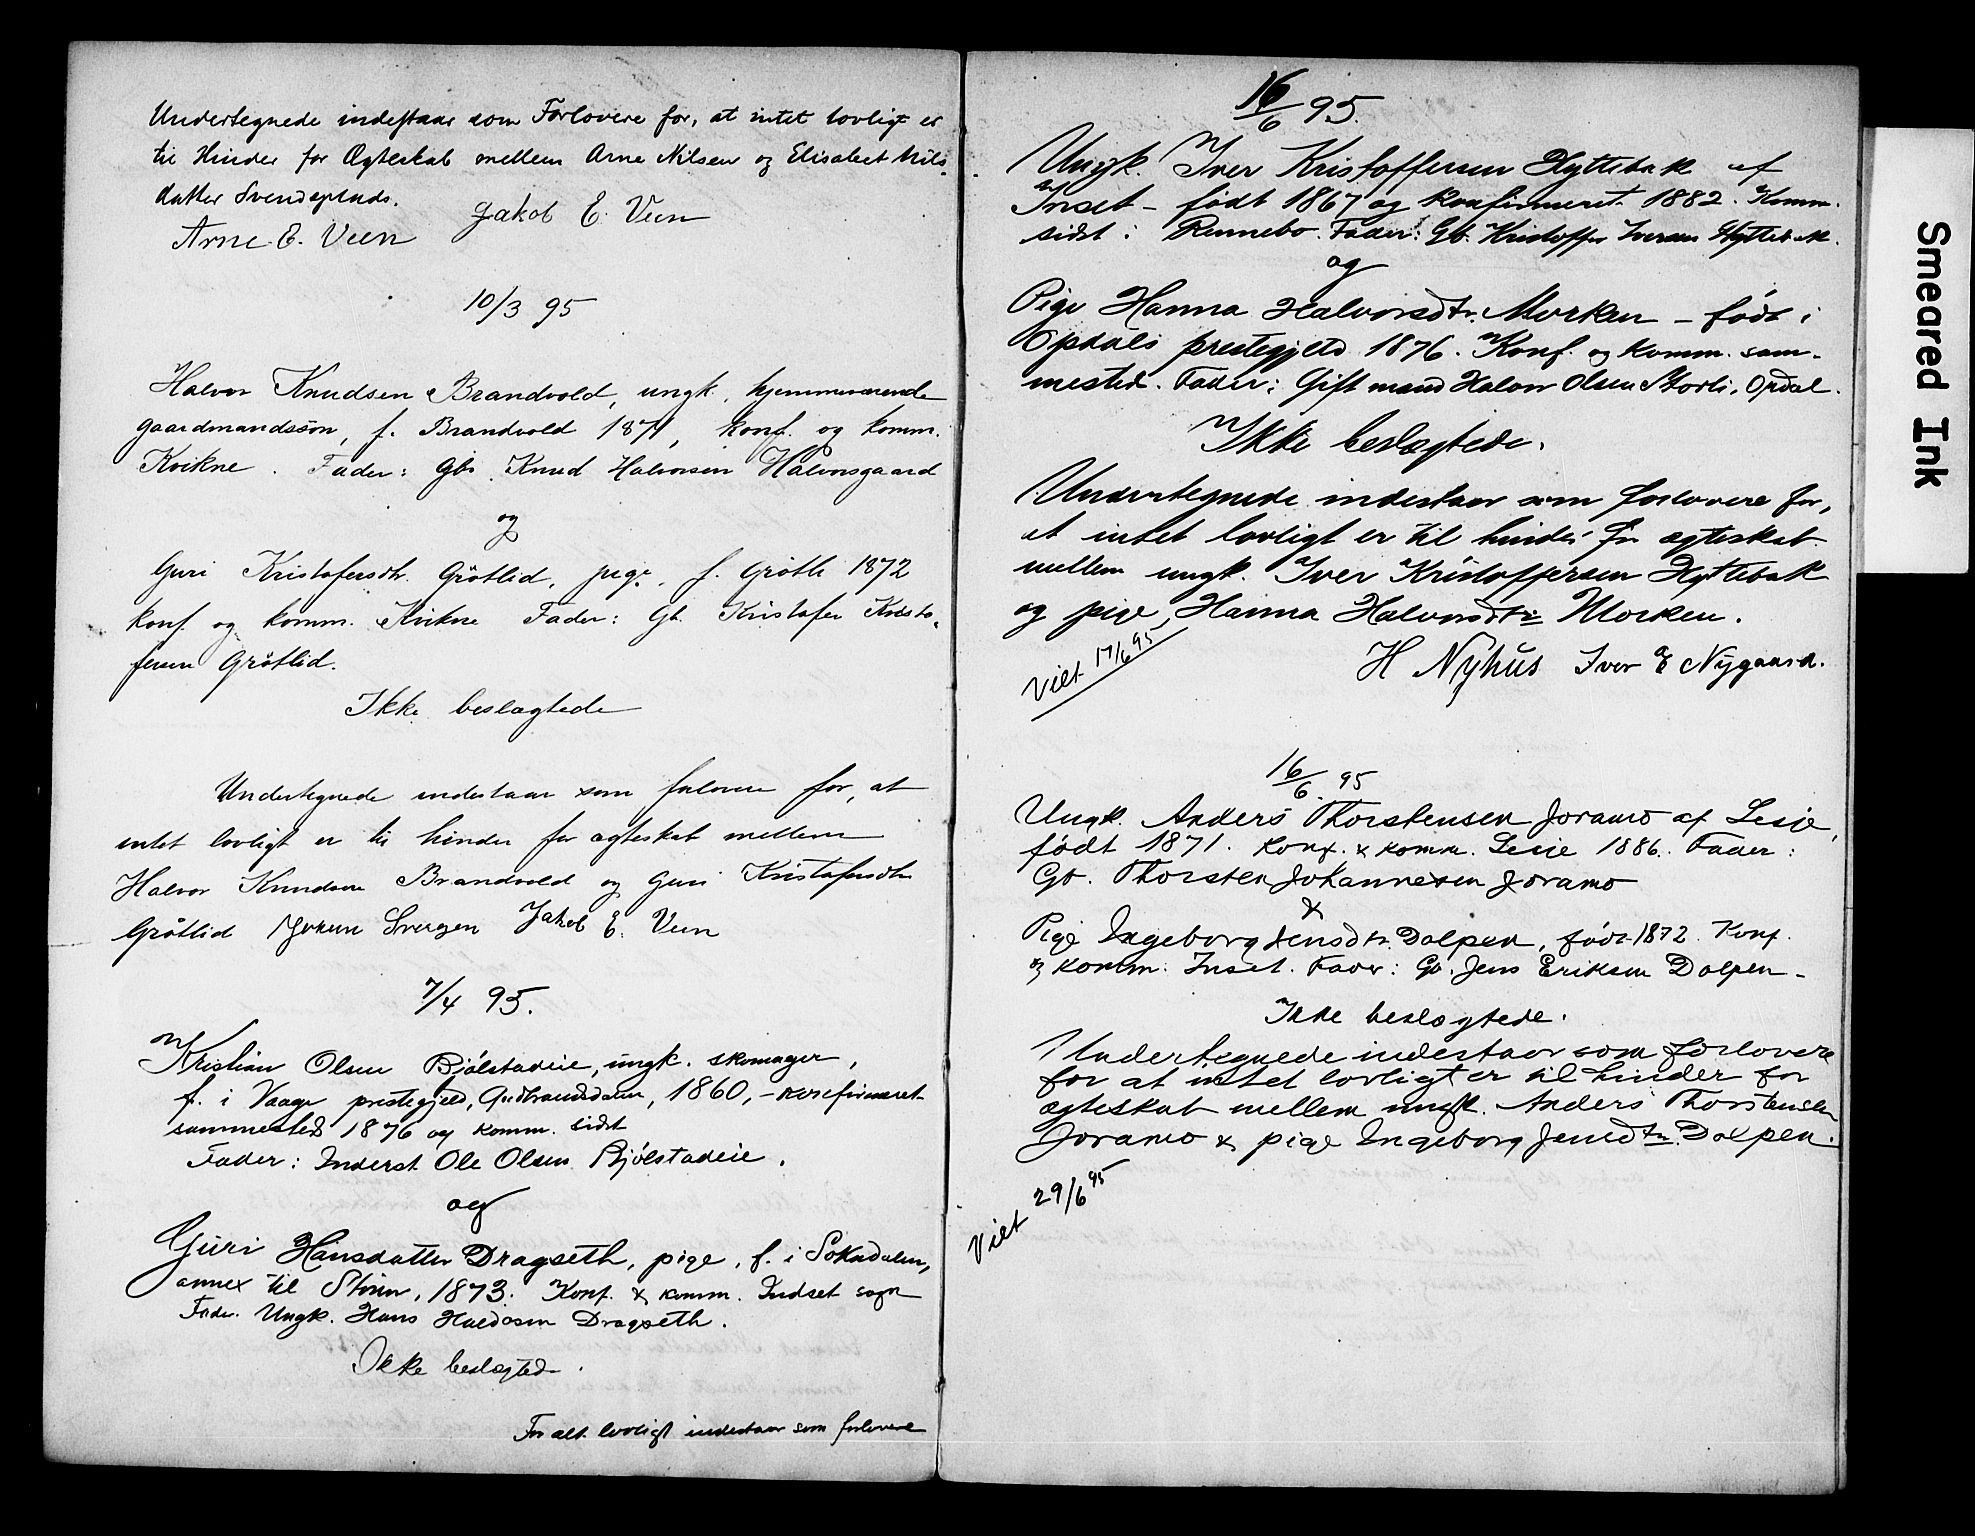 Undertegnede indestaar som Forlovere for, at intet lovligt er
til Hinder for Ægteskab mellem Arne Nilsen og Elisabet Nils-
datter Svendsplads.
Arne E. Veen Jakob E. Veen
10/3 95
Halvor Knudsen Brandvold, ungk., hjemmeværende
gaardmandssøn, f. Brandvold 1871, konf. og komm.
Kvikne. Fader: Gbr. Knud Halvorsen Halvorsgaard
og
Guri Kristofersdtr. Grötlid, pige, f. Grötli 1872
konf. og komm. Kvikne Fader: Gb. Kristofer Kristo-
fersen Grötlid.
Ikke beslægtede
Undertegnede indestaar som forlovere for, at
intet lovligt er til hinder for ægteskab mellem
Halvor Knudsen Brandvold og Guri Kristofersdtr
Grötlid Jakob E. Veen
7/4 95.
Kristian Olsen Bjölstadeie, ungk. skomager,
f. i Vaage prestegjeld, Gudbrandsdalen, 1860, - konfirmeret
sammesteds 1876 og komm. sidst
Fader: Inderst Ole Olsen Bjölstadeie.
og
Guri Hansdatter Dragseth, pige, f. i Soknedalen,
annex til Stören, 1873. Konf. & komm. Indset sogn
Fader. Ungk. Hans Haldosen Dragseth.
Ikke beslægtede.
For alt lovligt indestaar som forlovere
16/6 95.
Ungk. Iver Kristoffersen Hyttebak af
Inset - födt 1867 og konfirmeret 1882. Komm.
sidst i Rennebo. Fader: Gb. Kristoffer Iversen Hyttebak.
og
Pige Hanna Halvorsdtr. Morken - födt i
Opdals prestegjeld 1876. Konf. og komm. sam-
mested. Fader: Gift mand Halvor Olsen Storli, Opdal.
Ikke beslægtede.
Undertegnede indestaar som forlovere for,
at intet lovligt er til hinder for ægteskab
mellem ungk. Iver Kristoffersen Hyttebak
og pige Hanna Halvorsdtr Morken.
Viet 17/6 95
H Nyhus Iver E Nygaard.
16/6 95
Ungk. Anders Thorstensen Joramo af Lesje,
födt 1871. Konf. & komm. Lesje 1886. Fader:
Gb. Thorsten Johannesen Joramo
&
Pige Ingeborg Jensdtr. Dalpen, födt 1872. Konf.
og komm. Inset. Fader: Gb. Jens Eriksen Dalpen -
Ikke beslægtede.
Undertegnede indestaar som forlovere
for at intet lovligt er til hinder for
ægteskab mellem ungk. Anders Thorstensen
Joramo & pige Ingeborg Jensdtr. Dalpen.
Viet 29/6 95
Smeared Ink